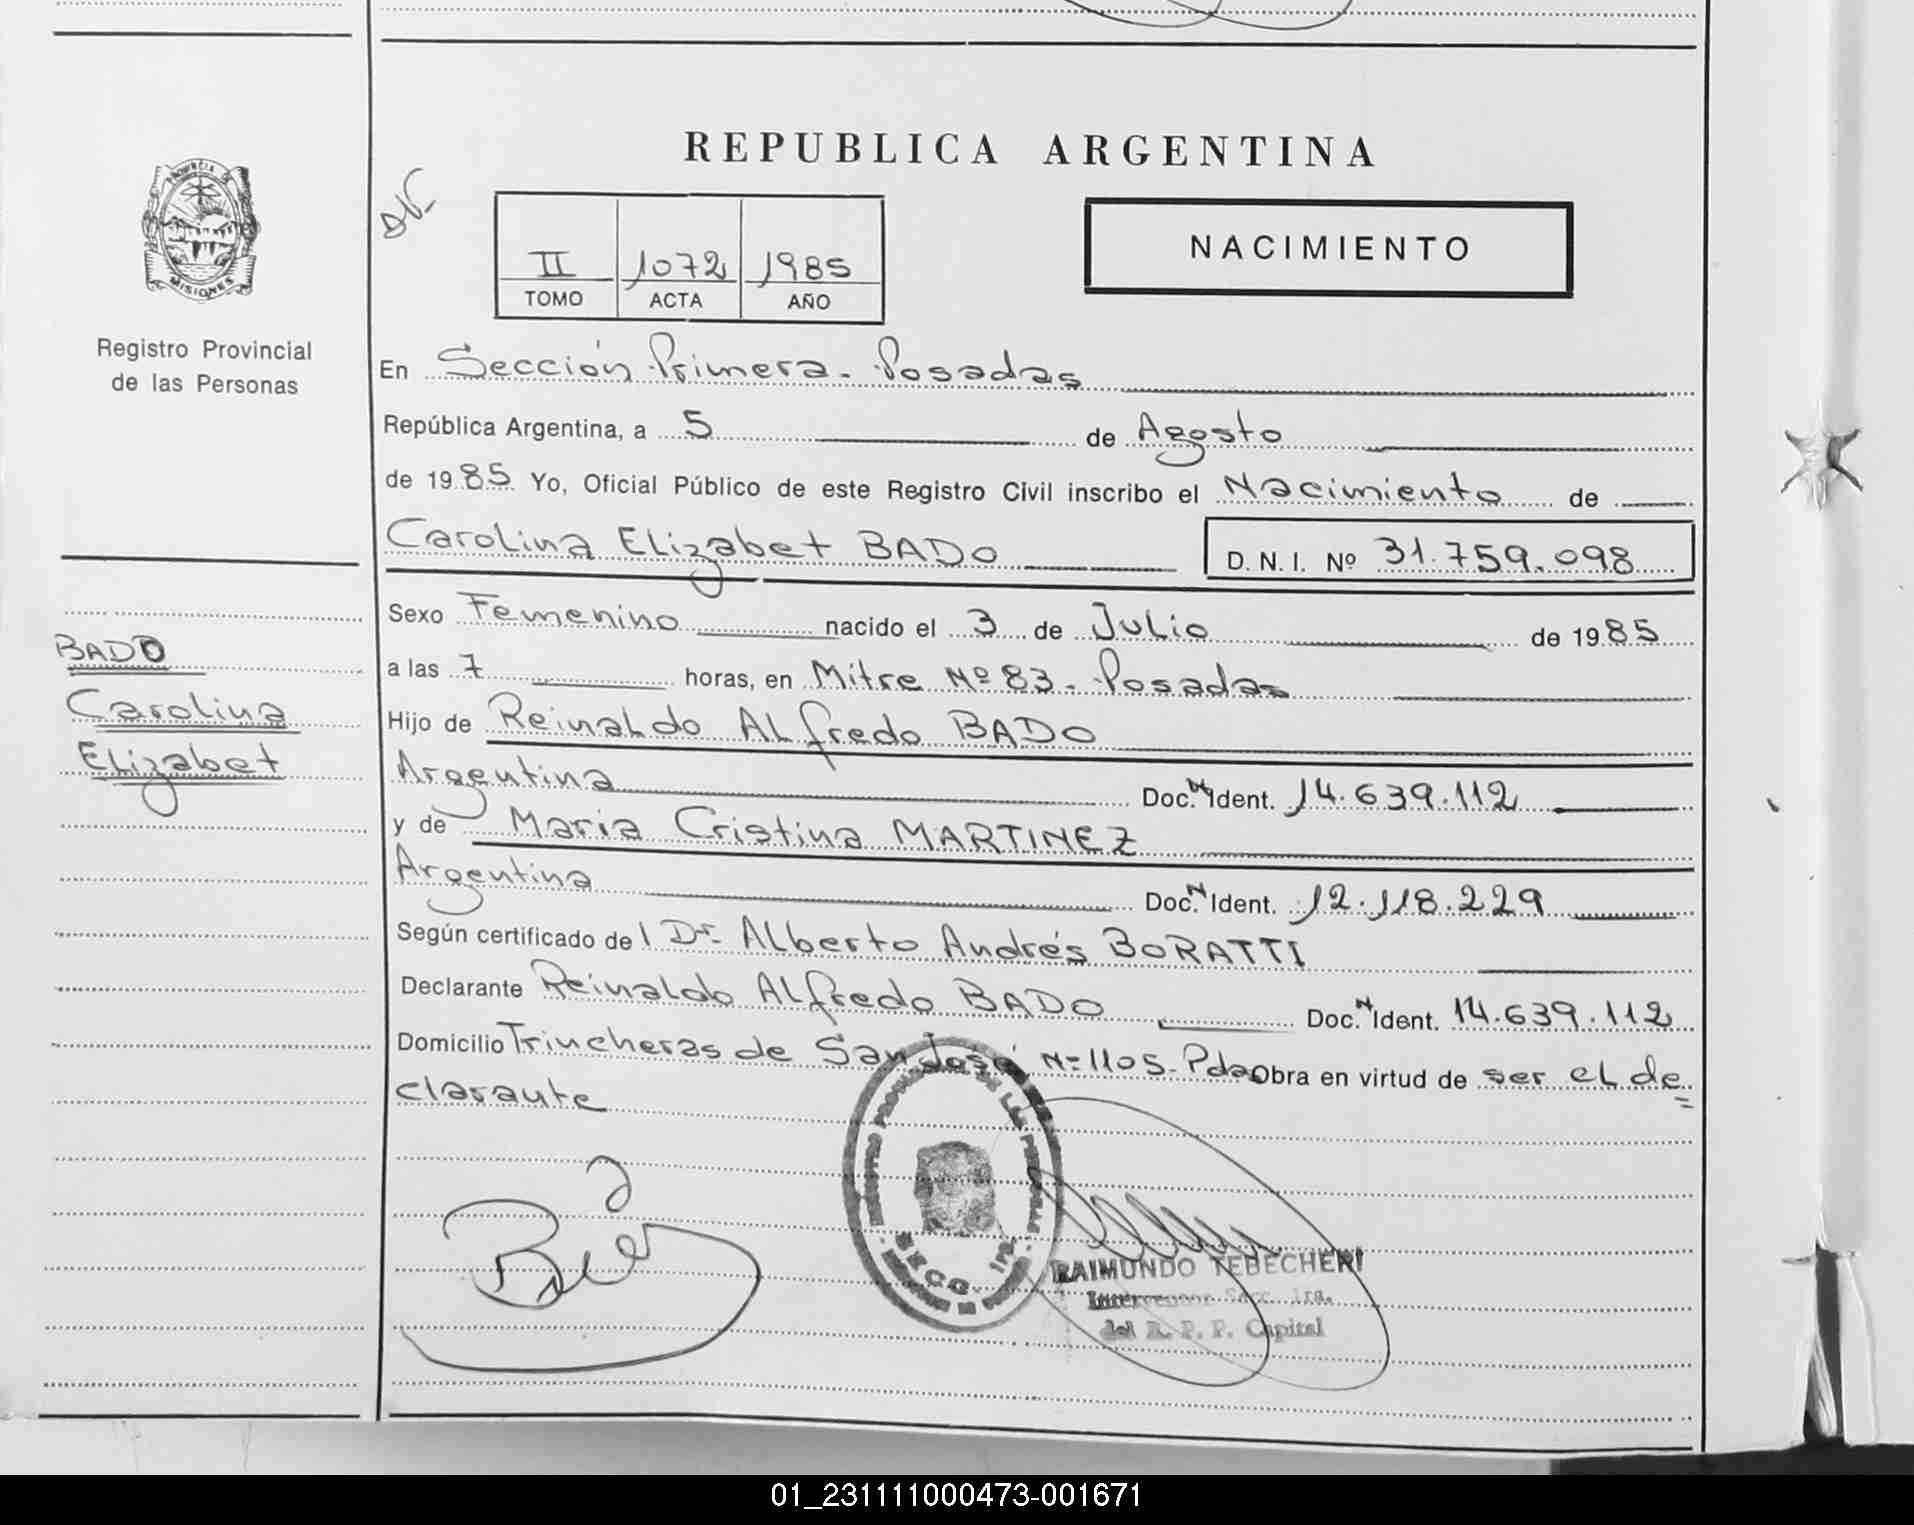 REPUBLICA ARGENTINA
PROVINCIA DE
MISIONES
Registro Provincial
de las Personas
II 1072 1985
TOMO ACTA AÑO
NACIMIENTO
En Sección Primera - Posadas
República Argentina, a 5 de Agosto
de 1985 Yo, Oficial Público de este Registro Civil inscribo el Nacimiento de
Carolina Elizabet BADO D. N. I. Nº 31.759.098
Sexo Femenino nacido el 3 de Julio de 1985
a las 7 horas, en Mitre Nº 83 - Posadas
Hijo de Reinaldo Alfredo BADO
Argentina Doc. N Ident. 14.639.112
y de Maria Cristina MARTINEZ
Argentina Doc. N Ident. 12.118.229
Según certificado de l Dr. Alberto Andrés BORATTI
Declarante Reinaldo Alfredo BADO Doc. N Ident. 14.639.112
Domicilio Trincheras de San José Nº 1105 - Pdas Obra en virtud de ser el de=
clarante
BADO
Carolina
Elizabet
REGISTRO PROVINCIAL DE LAS PERSONAS
SECC. 1ra.
RAIMUNDO TEBECHERI
Interventor Secc. 1ra.
del R. P. P. Capital
01_231111000473-001671